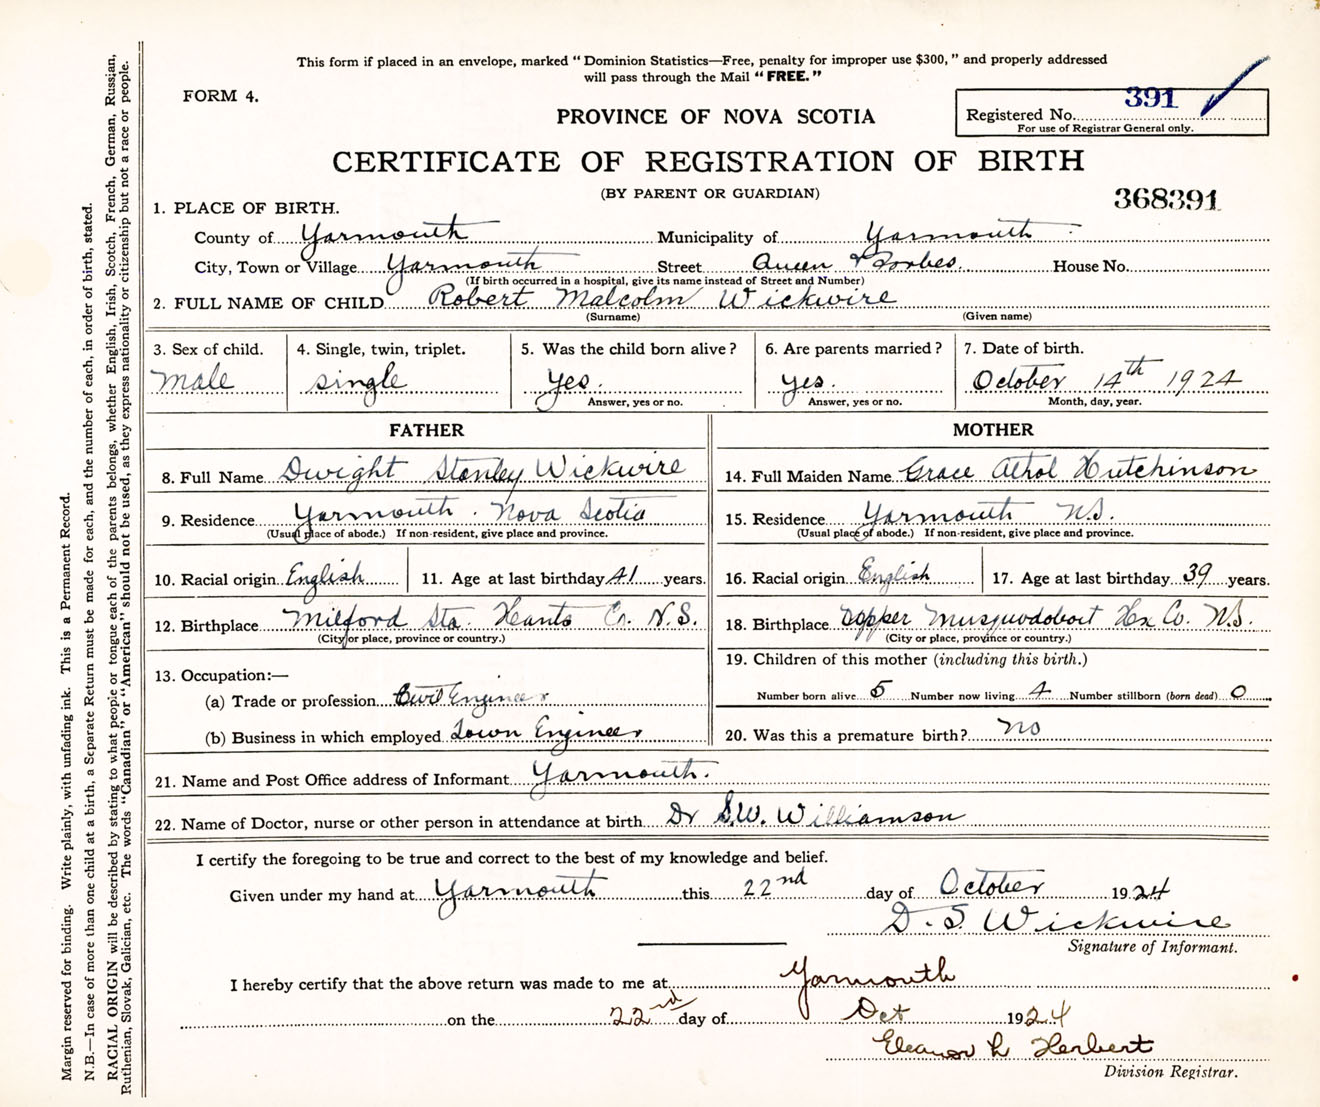 This form if placed in an envelope, marked "Dominion Statistics—Free, penalty for improper use $300," and properly addressed
will pass through the Mail "FREE."
FORM 4.
391
PROVINCE OF NOVA SCOTIA
Registered No.
For use of Registrar General only.
CERTIFICATE OF REGISTRATION OF BIRTH
(BY PARENT OR GUARDIAN)
368391
1. PLACE OF BIRTH.
County of Yarmouth Municipality of Yarmouth
City, Town or Village Yarmouth Street Queen & Forbes. House No.
(If birth occurred in a hospital, give its name instead of Street and Number)
2. FULL NAME OF CHILD Robert Malcolm Wickwire
(Surname) (Given name)
3. Sex of child. 4. Single, twin, triplet. 5. Was the child born alive? 6. Are parents married? 7. Date of birth.
male single yes. yes. October 14th 1924
Answer, yes or no. Answer, yes or no. Month, day, year.
FATHER MOTHER
8. Full Name Dwight Stanley Wickwire 14. Full Maiden Name Grace Athol Hutchinson
9. Residence Yarmouth. Nova Scotia 15. Residence Yarmouth N.S.
(Usual place of abode.) If non-resident, give place and province. (Usual place of abode.) If non-resident, give place and province.
10. Racial origin English 11. Age at last birthday 41 years. 16. Racial origin English 17. Age at last birthday 39 years.
12. Birthplace Milford Sta. Hants Co. N.S. 18. Birthplace Upper Musquodoboit Hx Co. N.S.
(City or place, province or country.) (City or place, province or country.)
13. Occupation:— 19. Children of this mother (including this birth.)
(a) Trade or profession Civil Engineer Number born alive 5 Number now living 4 Number stillborn (born dead) 0
(b) Business in which employed Town Engineer 20. Was this a premature birth? No
21. Name and Post Office address of Informant Yarmouth.
22. Name of Doctor, nurse or other person in attendance at birth Dr S.W. Williamson
I certify the foregoing to be true and correct to the best of my knowledge and belief.
Given under my hand at Yarmouth this 22nd day of October 1924
D. S. Wickwire
Signature of Informant.
I hereby certify that the above return was made to me at Yarmouth
on the 22nd day of Oct 1924
Eleanor L Herbert
Division Registrar.
Margin reserved for binding. Write plainly, with unfading ink. This is a Permanent Record.
N.B.—In case of more than one child at a birth, a Separate Return must be made for each, and the number of each, in order of birth, stated.
RACIAL ORIGIN will be described by stating to what people or tongue each of the parents belongs, whether English, Irish, Scotch, French, German, Russian,
Ruthenian, Slovak, Galician, etc. The words "Canadian" or "American" should not be used, as they express nationality or citizenship but not a race or people.